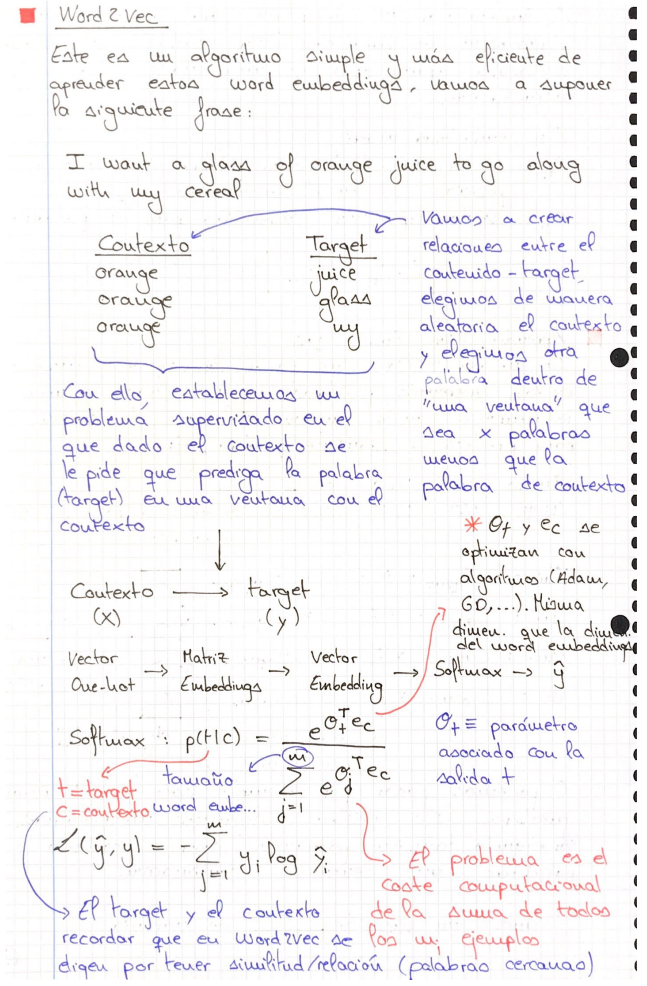 Word2Vec
Este es un algoritmo simple y más eficiente de
aprender estos word embeddings, vamos a suponer
la siguiente frase:
I want a glass of orange juice to go along
with my cereal
Contexto Target
orange juice
orange glass
orange my
Vamos a crear
relaciones entre el
contenido-target,
elegimos de manera
aleatoria el contexto
y elegimos otra
palabra dentro de
"una ventana" que
sea x palabras
menos que la
palabra de contexto
Con ello, establecemos un
problema supervisado en el
que dado el contexto se
le pide que prediga la palabra
(target) en una ventana con el
contexto
* θt y ec se
optimizan con
algoritmos (Adam,
GD,...). Misma
dimen. que la dimen.
del word embeddings
Contexto → target
(x) (y)
Vector → Matriz → Vector → Softmax → ŷ
One-hot Embeddings Embedding
Softmax : p(t|c) = e^{θt^T ec} / Σ_{j=1}^{m} e^{θj^T ec}
θt ≡ parámetro
asociado con la
salida t
t = target
c = contexto
tamaño
word embe...
L(ŷ, y) = - Σ_{j=1}^{m} yi log ŷi
El problema es el
coste computacional
de la suma de todos
los m, ejemplos
El target y el contexto
recordar que en word2vec se
eligen por tener similitud/relación (palabras cercanas)